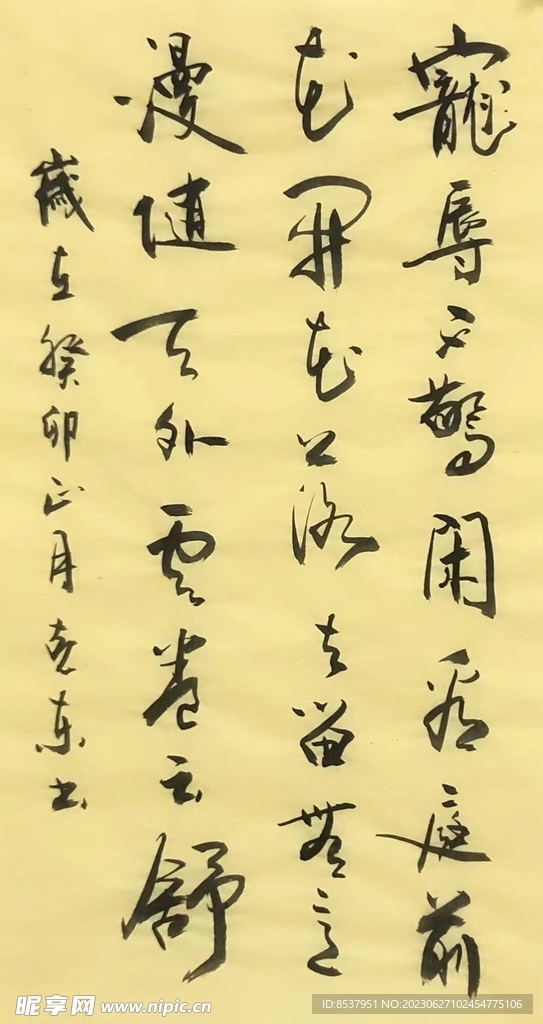 寵辱不驚閒看庭前
花開花落去留無意
漫随天外雲卷云舒
歲在癸卯正月克东书
昵享网 www.nipic.cn
ID:8537951 NO:20230627102454775106